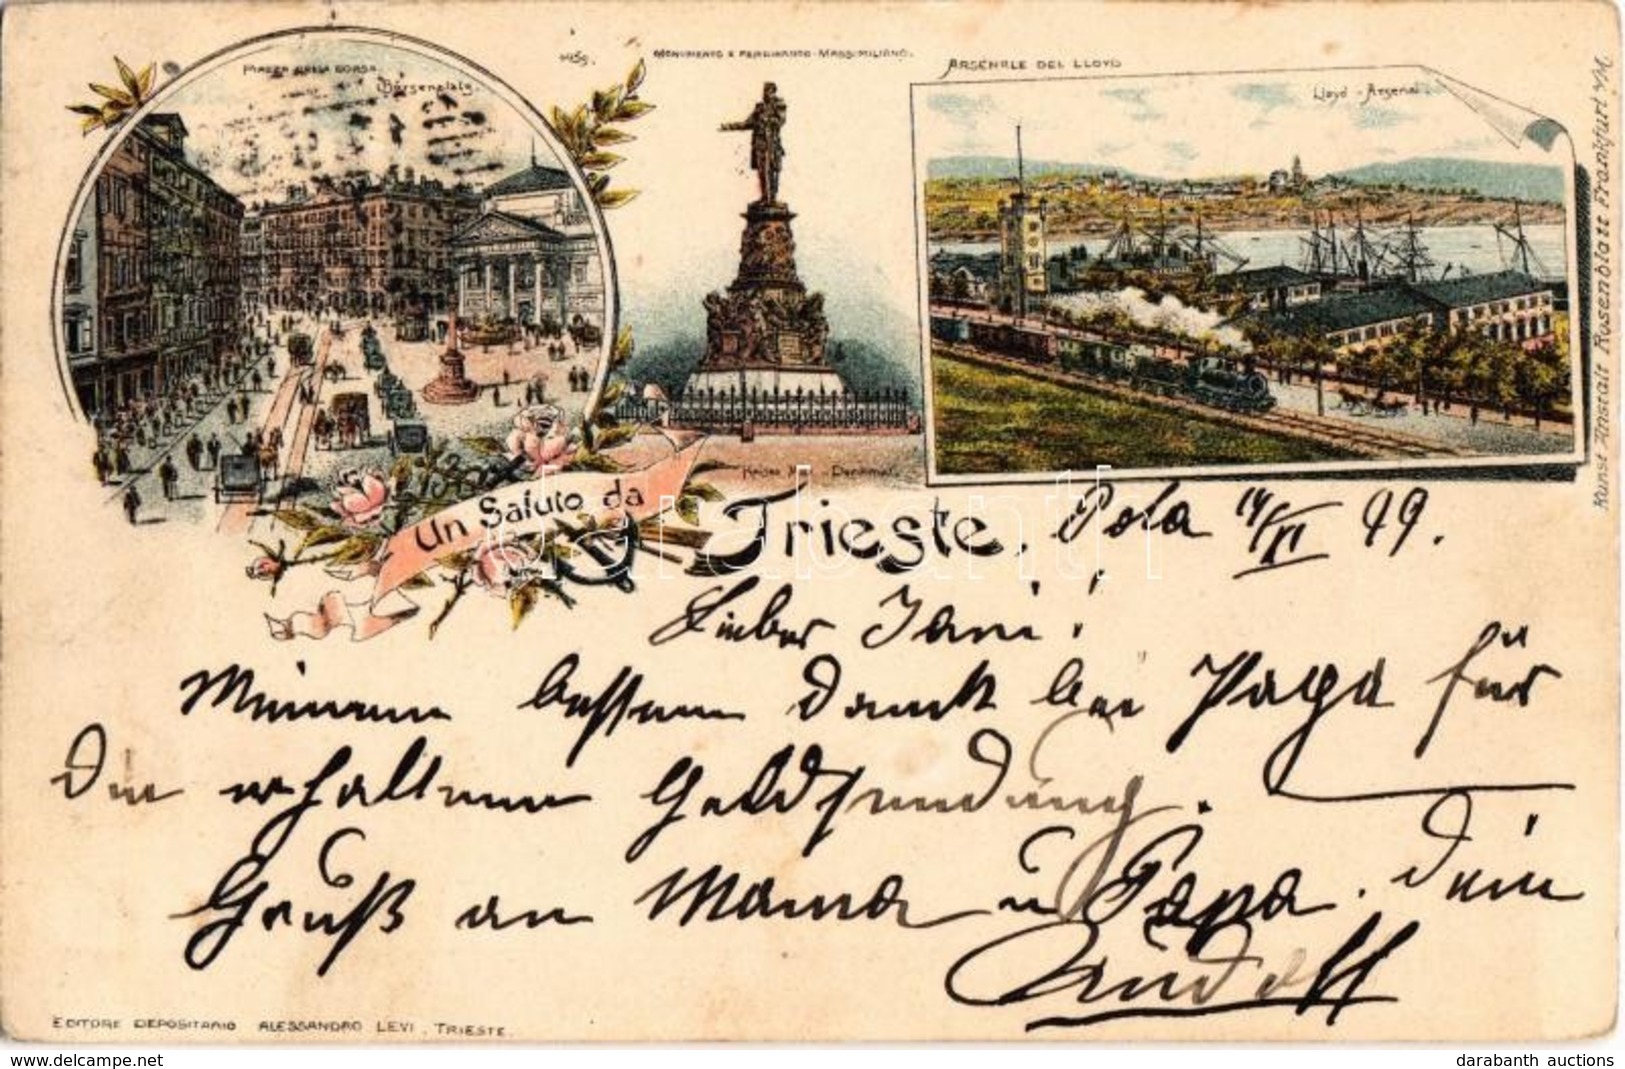 PIAZZA DELLA BORSA
Börsenplatz.
MONUMENTO E FERDINANDO-MASSIMILIANO.
Kaiser Max-Denkmal.
ARSENALE DEL LLOYD
Lloyd-Arsenal.
Kunst Anstalt Rosenblatt Frankfurt a/M
Un Saluto da
Trieste.
Pola 14/XI 99.
Lieber Jani!
Meinen besten Dank bei Papa für
Die erhaltene Geldsendung.
Gruß an Mama u Papa. Dein
Rudolf
EDITORE DEPOSITARIO ALESSANDRO LEVI, TRIESTE.
darabanth
www.delcampe.net
darabanth auctions